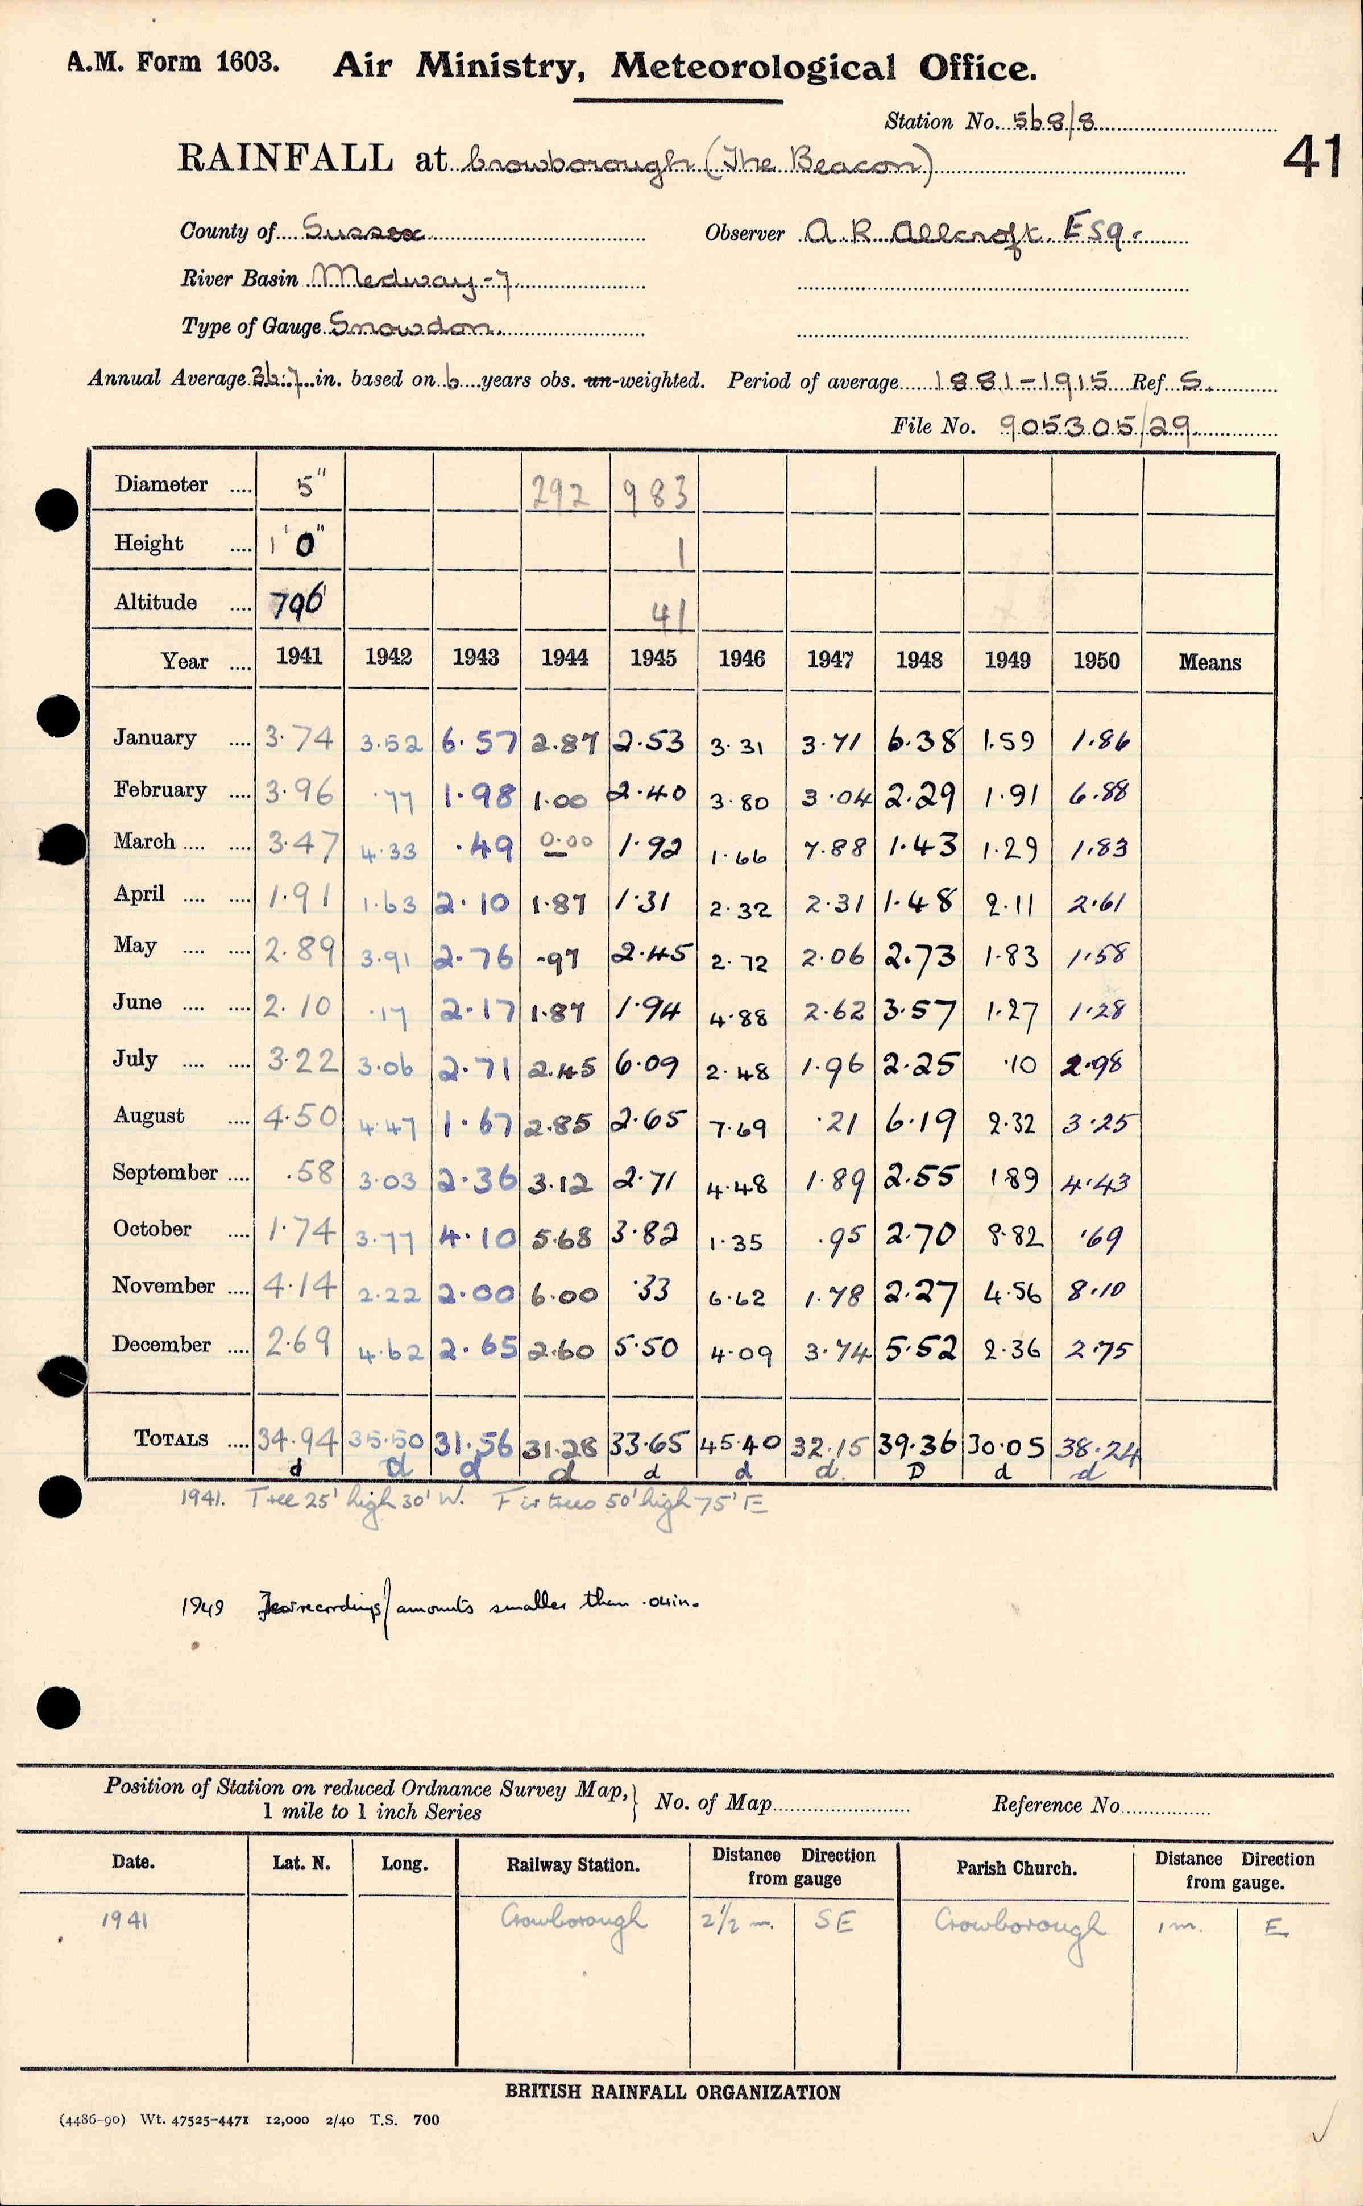 A.M. Form 1603. Air Ministry, Meteorological Office.
Station No. 568/8
41
RAINFALL at Crowborough (The Beacon)
County of Sussex Observer A R Allcroft. Esq.
River Basin Medway-7
Type of Gauge Snowdon.
Annual Average 36.7 in. based on 6 years obs. un-weighted. Period of average 1881-1915 Ref S.
File No. 905305/29
Diameter .... 5" 292 983
Height .... 1' 0" 1
Altitude .... 796 41
Year .... 1941 1942 1943 1944 1945 1946 1947 1948 1949 1950 Means
January .... 3.74 3.52 6.57 2.87 2.53 3.31 3.71 6.38 1.59 1.86
February .... 3.96 .77 1.98 1.00 2.40 3.80 3.04 2.29 1.91 6.88
March .... .... 3.47 4.33 .49 0.00 1.92 1.66 7.88 1.43 1.29 1.83
April .... .... 1.91 1.63 2.10 1.87 1.31 2.32 2.31 1.48 2.11 2.61
May .... .... 2.89 3.91 2.76 .97 2.45 2.72 2.06 2.73 1.83 1.58
June .... .... 2.10 .17 2.17 1.87 1.94 4.88 2.62 3.57 1.27 1.28
July .... .... 3.22 3.06 2.71 2.45 6.09 2.48 1.96 2.25 .10 2.98
August .... 4.50 4.47 1.67 2.85 2.65 7.69 .21 6.19 2.32 3.25
September .... .58 3.03 2.36 3.12 2.71 4.48 1.89 2.55 1 89 4.43
October .... 1.74 3.77 4.10 5.68 3.82 1.35 .95 2.70 8.82 .69
November .... 4.14 2.22 2.00 6.00 .33 6.62 1.78 2.27 4.56 8.10
December .... 2.69 4.62 2.65 2.60 5.50 4.09 3.74 5.52 2.36 2.75
TOTALS .... 34.94 35.50 31.56 31.28 33.65 45.40 32.15 39.36 30.05 38.24
d d d d d d d. D d d
1941. Tree 25' high 30' W. Fir trees 50' high 75' E
1949 recordings amounts smaller than .04in.
Position of Station on reduced Ordnance Survey Map, } No. of Map Reference No.
1 mile to 1 inch Series
Date. Lat. N. Long. Railway Station. Distance Direction from gauge Parish Church. Distance Direction from gauge.
1941 Crowborough 2 1/2 m. SE Crowborough 1 m. E
BRITISH RAINFALL ORGANIZATION
(4486-90) Wt. 47525-4471 12,000 2/40 T.S. 700